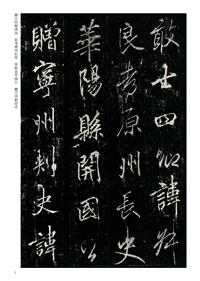 士四諱叔
良考原州長史
華陽縣開國公
贈寧州刺史諱